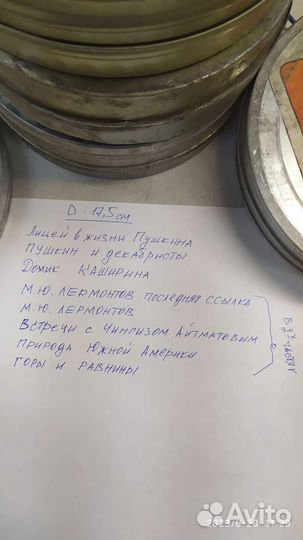 D - 17,5 см
Лицей в жизни Пушкина
Пушкин и декабристы
Домик Каширина
М.Ю. Лермонтов последняя ссылка
М.Ю. Лермонтов
Встречи с Чингизом Айтматовым
природа Южной Америки
горы и равнины
в 2х частях
Avito